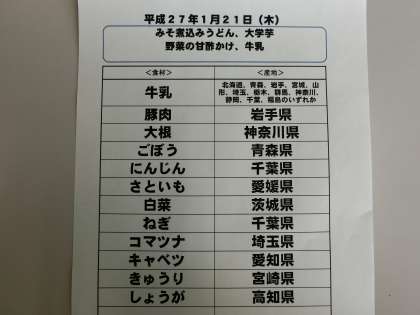 平成27年1月21日（木）
みそ煮込みうどん、大学芋
野菜の甘酢かけ、牛乳
＜食材＞ ＜産地＞
牛乳 北海道、青森、岩手、宮城、山
形、埼玉、栃木、群馬、神奈川、
静岡、千葉、福島のいずれか
豚肉 岩手県
大根 神奈川県
ごぼう 青森県
にんじん 千葉県
さといも 愛媛県
白菜 茨城県
ねぎ 千葉県
コマツナ 埼玉県
キャベツ 愛知県
きゅうり 宮崎県
しょうが 高知県